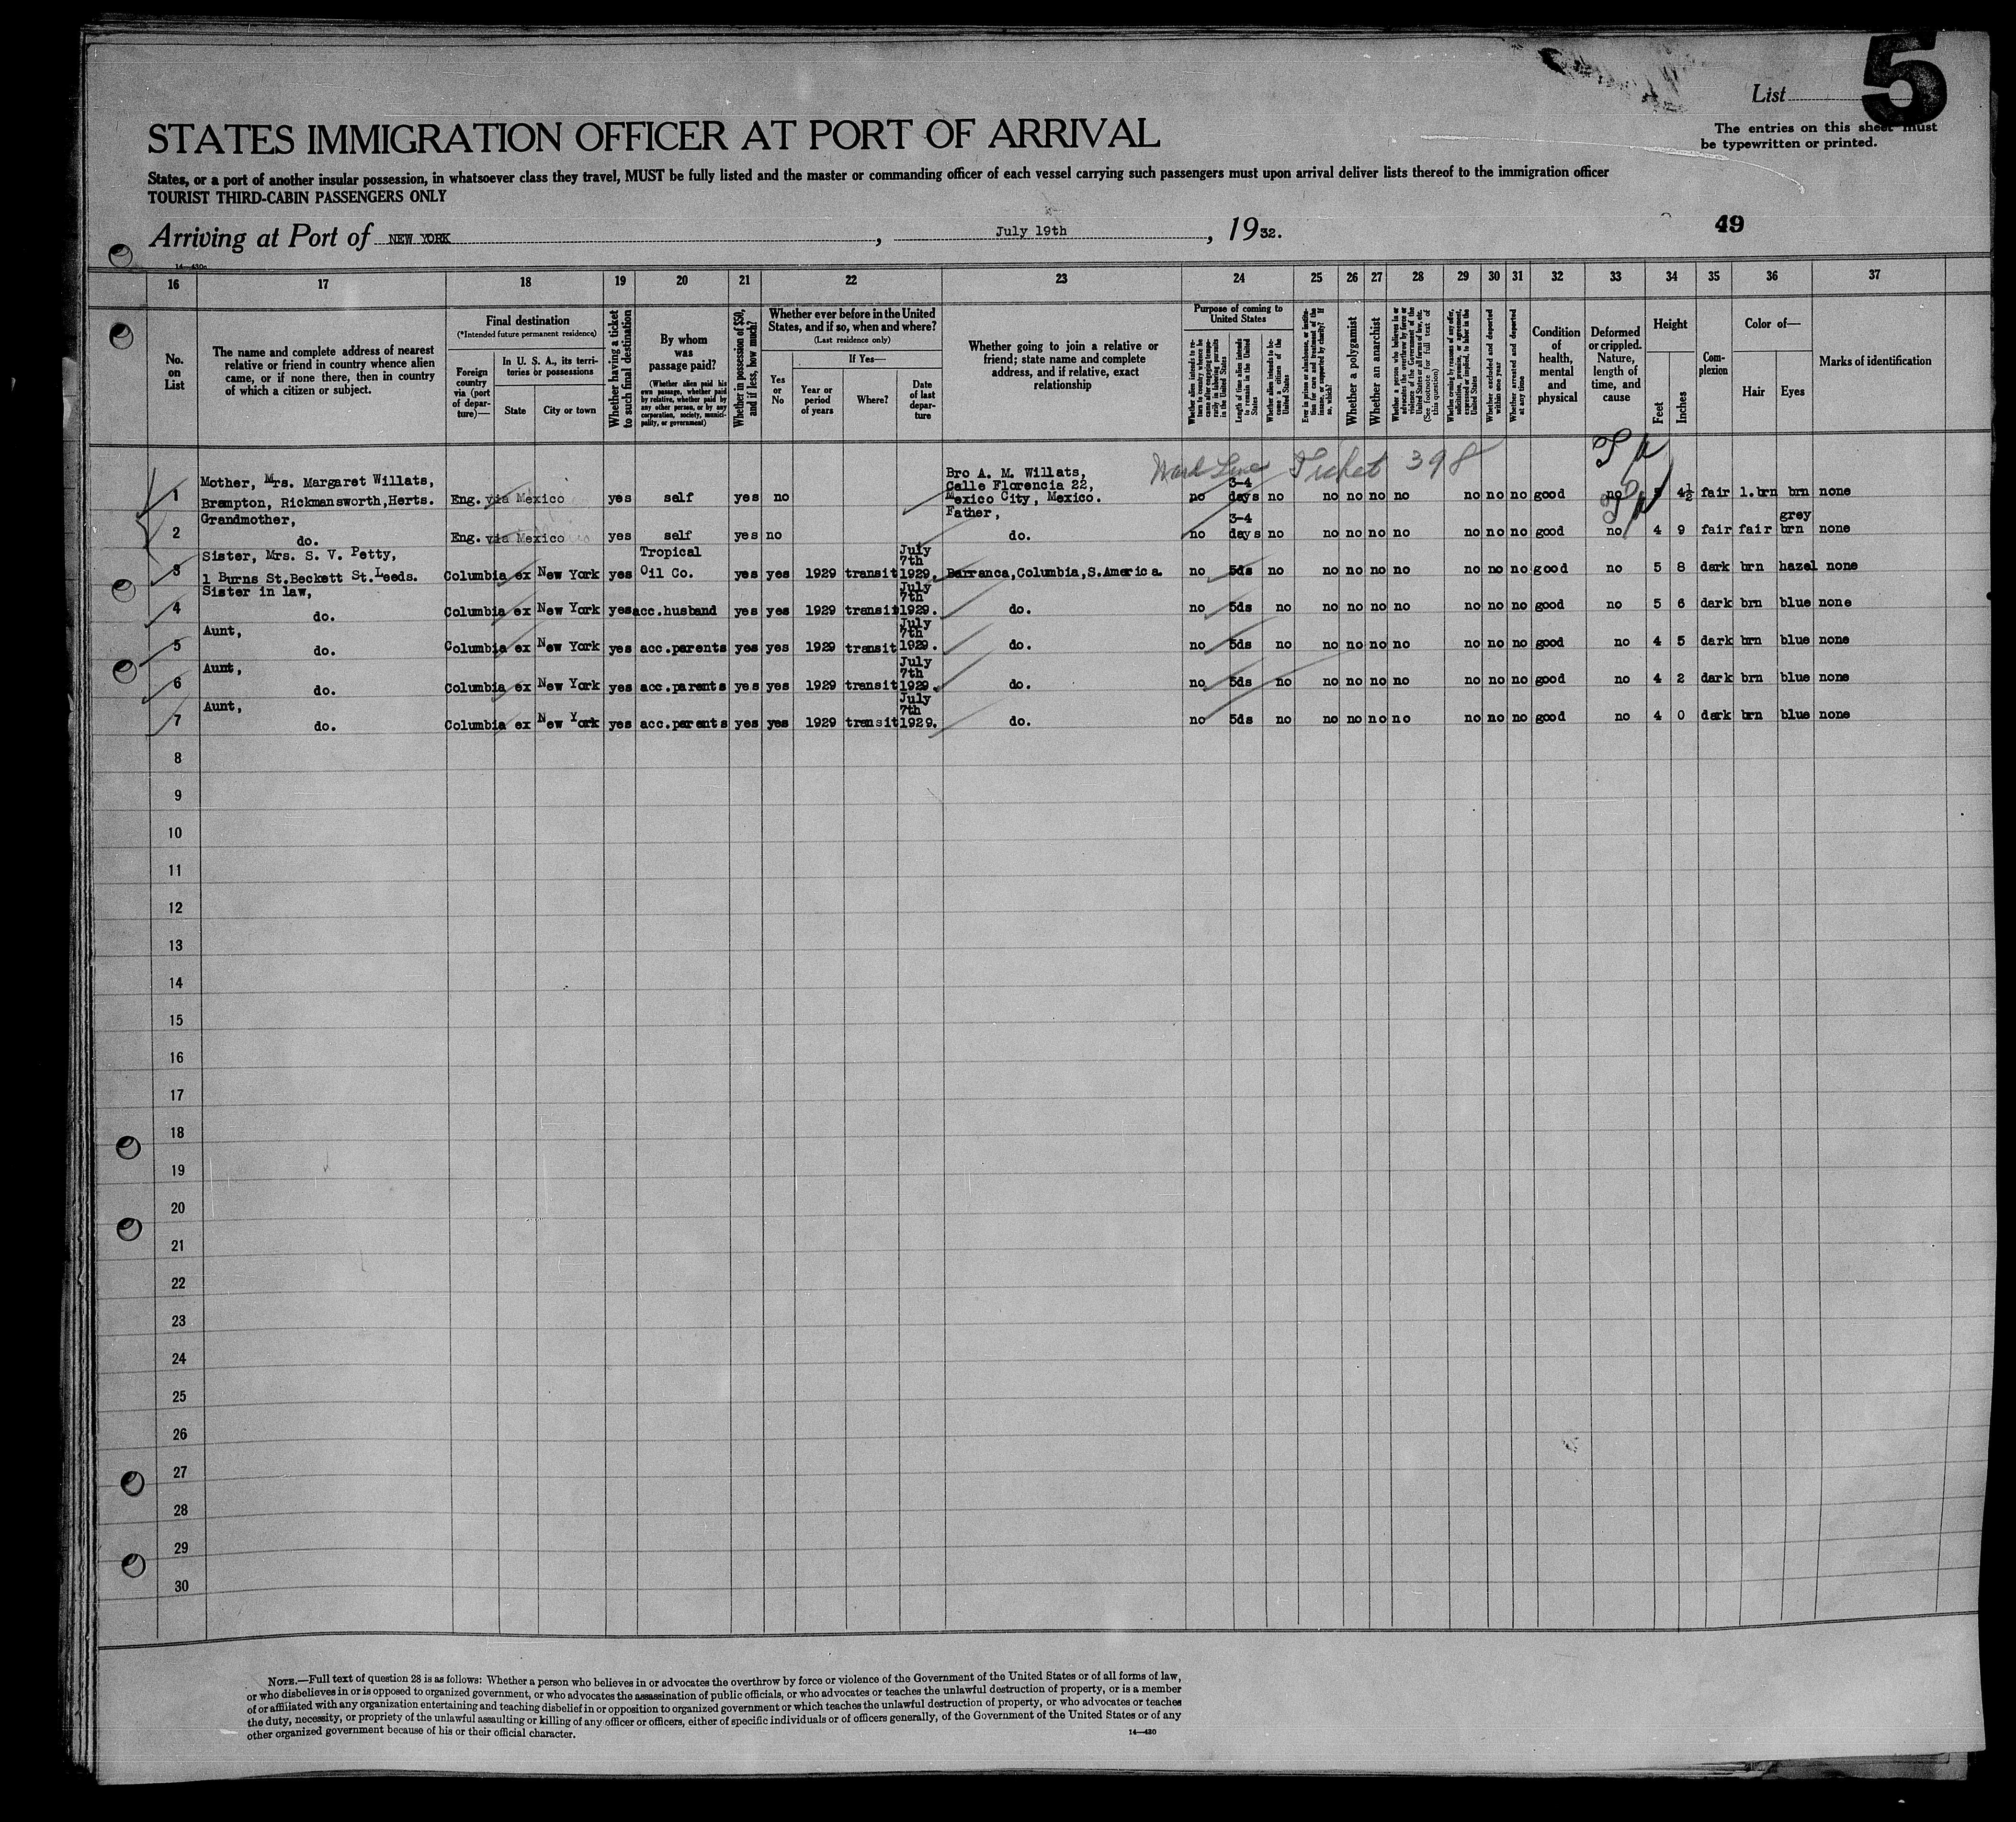 List 5
The entries on this sheet must
be typewritten or printed.
STATES IMMIGRATION OFFICER AT PORT OF ARRIVAL
States, or a port of another insular possession, in whatsoever class they travel, MUST be fully listed and the master or commanding officer of each vessel carrying such passengers must upon arrival deliver lists thereof to the immigration officer
TOURIST THIRD-CABIN PASSENGERS ONLY
Arriving at Port of NEW YORK, July 19th, 1932.
49
14—430a
16 17 18 19 20 21 22 23 24 25 26 27 28 29 30 31 32 33 34 35 36 37
No. on List
The name and complete address of nearest relative or friend in country whence alien came, or if none there, then in country of which a citizen or subject.
Final destination
(*Intended future permanent residence)
Foreign country via (port of departure)—
In U. S. A., its territories or possessions
State
City or town
Whether having a ticket to such final destination
By whom was passage paid?
(Whether alien paid his own passage, whether paid by relative, whether paid by any other person, or by any corporation, society, municipality, or government)
Whether in possession of $50, and if less, how much?
Whether ever before in the United States, and if so, when and where?
(Last residence only)
Yes or No
If Yes—
Year or period of years
Where?
Date of last departure
Whether going to join a relative or friend; state name and complete address, and if relative, exact relationship
Purpose of coming to United States
Whether alien intends to return to country whence he came after engaging temporarily in laboring pursuits in the United States
Length of time alien intends to remain in the United States
Whether alien intends to become a citizen of the United States
Ever in prison or almshouse, or institution for care and treatment of the insane, or supported by charity? If so, which?
Whether a polygamist
Whether an anarchist
Whether a person who believes in or advocates the overthrow by force or violence of the Government of the United States or all forms of law, etc. (See footnote for full text of this question)
Whether coming by reasons of any offer, solicitation, promise, or agreement, expressed or implied, to labor in the United States
Whether excluded and deported within one year
Whether arrested and deported at any time
Condition of health, mental and physical
Deformed or crippled. Nature, length of time, and cause
Height
Feet
Inches
Complexion
Color of—
Hair
Eyes
Marks of identification
Ticket 398
1 Mother, Mrs. Margaret Willats, Brampton, Rickmansworth, Herts. Eng. via Mexico yes self yes no Bro A. M. Willats, Calle Florencia 22, Mexico City, Mexico. no 3-4 days no no no no no no no no good no 4½ fair l.brn brn none
2 Grandmother, do. Eng. via Mexico yes self yes no Father, do. no 3-4 days no no no no no no no no good no 4 9 fair fair grey brn none
3 Sister, Mrs. S. V. Petty, 1 Burns St.Beckett St.Leeds. Columbia ex New York yes Tropical Oil Co. yes yes 1929 transit July 7th 1929. Barranca,Columbia,S.America. no 5ds no no no no no no no no good no 5 8 dark brn hazel none
4 Sister in law, do. Columbia ex New York yes acc.husband yes yes 1929 transit July 7th 1929. do. no 5ds no no no no no no no no good no 5 6 dark brn blue none
5 Aunt, do. Columbia ex New York yes acc.parents yes yes 1929 transit July 7th 1929. do. no 5ds no no no no no no no no good no 4 5 dark brn blue none
6 Aunt, do. Columbia ex New York yes acc.parents yes yes 1929 transit July 7th 1929. do. no 5ds no no no no no no no no good no 4 2 dark brn blue none
7 Aunt, do. Columbia ex New York yes acc.parents yes yes 1929 transit July 7th 1929. do. no 5ds no no no no no no no no good no 4 0 dark brn blue none
8
9
10
11
12
13
14
15
16
17
18
19
20
21
22
23
24
25
26
27
28
29
30
NOTE.—Full text of question 28 is as follows: Whether a person who believes in or advocates the overthrow by force or violence of the Government of the United States or of all forms of law,
or who disbelieves in or is opposed to organized government, or who advocates the assassination of public officials, or who advocates or teaches the unlawful destruction of property, or is a member
of or affiliated with any organization entertaining and teaching disbelief in or opposition to organized government or which teaches the unlawful destruction of property, or who advocates or teaches
the duty, necessity, or propriety of the unlawful assaulting or killing of any officer or officers, either of specific individuals or of officers generally, of the Government of the United States or of any
other organized government because of his or their official character.
14—430